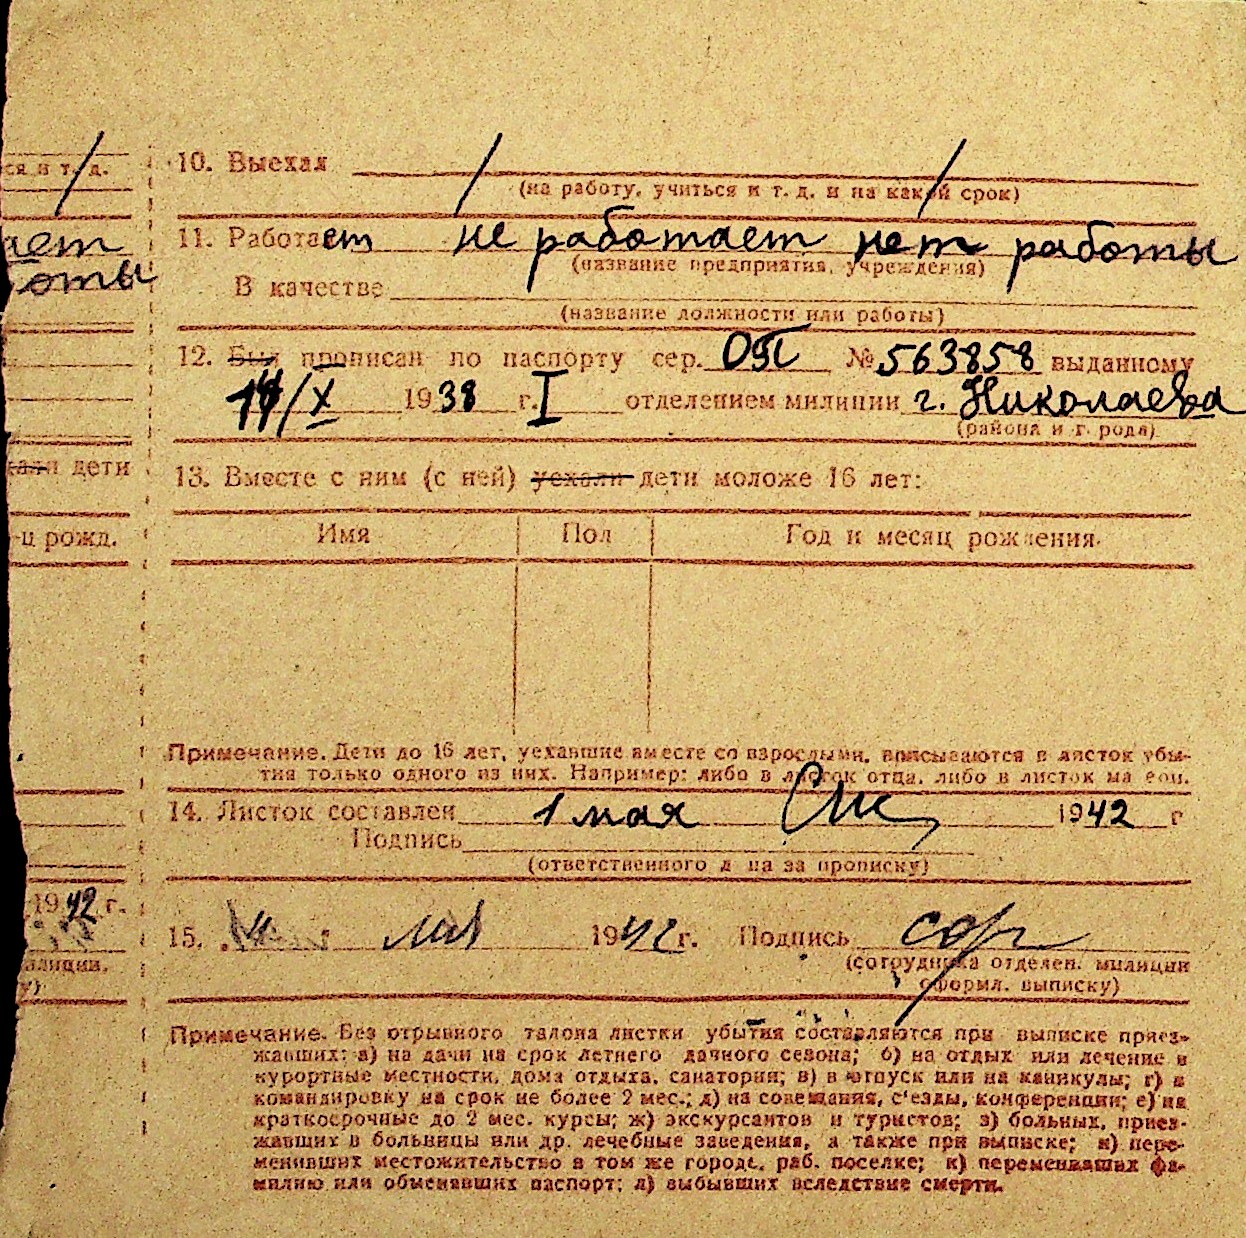 ся и т. д.
ает
оты
дети
ц рожд.
1942 г.
милиции,
у)
10. Выехал
(на работу, учиться и т. д. и на какой срок)
11. Работает не работает нет работы
(название предприятия, учреждения)
В качестве
(название должности или работы)
12. Был прописан по паспорту сер. № 563858 выданному
/X 1938 г. I отделением милиции г. Николаева
(района и г рода)
13. Вместе с ним (с ней) уехали дети моложе 16 лет:
Имя Пол Год и месяц рождения
Примечание. Дети до 16 лет, уехавшие вместе со взрослыми, вписываются в листок убы-
тия только одного из них. Например: либо в листок отца, либо в листок ма ери.
14. Листок составлен 1 мая 1942 г
Подпись
(ответственного л ца за прописку)
15. 4 мая 1942 г. Подпись
(сотрудника отделен. милиции
оформл. выписку)
Примечание. Без отрывного талона листки убытия составляются при выписке приез-
жавших: а) на дачи на срок летнего дачного сезона; б) на отдых или лечение в
курортные местности, дома отдыха, санатории; в) в отпуск или на каникулы; г) в
командировку на срок не более 2 мес.; д) на совещания, с'езды, конференции; е) на
краткосрочные до 2 мес. курсы; ж) экскурсантов и туристов; з) больных, приез-
жавших в больницы или др. лечебные заведения, а также при выписке; и) пере-
менивших местожительство в том же городе, раб. поселке; к) переменивших фа-
милию или обменявших паспорт; л) выбывших вследствие смерти.